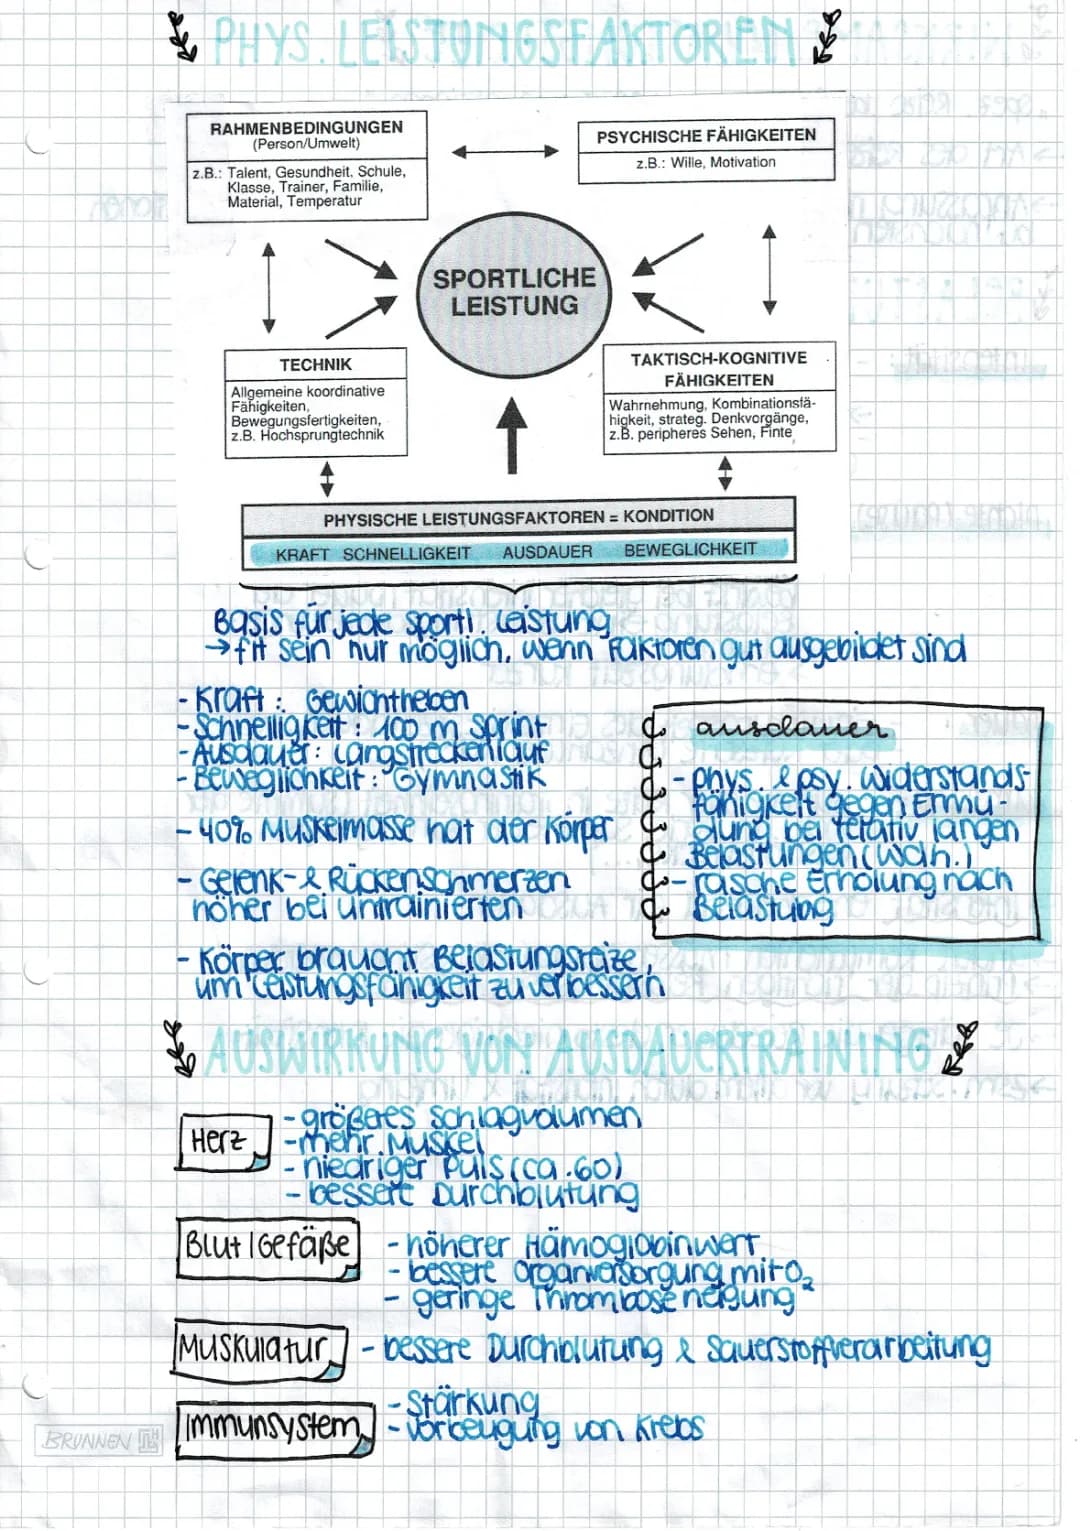 PHYS. LEISTUNGSFAKTOREN
RAHMENBEDINGUNGEN
(Person/Umwelt)
z.B.: Talent, Gesundheit, Schule,
Klasse, Trainer, Familie,
Material, Temperatur
PSYCHISCHE FÄHIGKEITEN
z.B.: Wille, Motivation
SPORTLICHE
LEISTUNG
TECHNIK
Allgemeine koordinative
Fähigkeiten,
Bewegungsfertigkeiten,
z.B. Hochsprungtechnik
TAKTISCH-KOGNITIVE
FÄHIGKEITEN
Wahrnehmung, Kombinationsfä-
higkeit, strateg. Denkvorgänge,
z.B. peripheres Sehen, Finte
PHYSISCHE LEISTUNGSFAKTOREN = KONDITION
KRAFT SCHNELLIGKEIT AUSDAUER BEWEGLICHKEIT
Basis für jede sportl. Leistung
→ fit sein nur möglich, wenn Faktoren gut ausgebildet sind
- Kraft: Gewichtheben
- Schnelligkeit: 100 m Sprint
- Ausdauer: Langstreckenlauf
- Beweglichkeit: Gymnastik
- 40% Muskelmasse hat der Körper
- Gelenk- & Rückenschmerzen
höher bei untrainierten
- Körper braucht Belastungsreize,
um Leistungsfähigkeit zu verbessern
ausdauer
- phys. & psy. Widerstands-
fähigkeit gegen Ermü-
dung bei relativ langen
Belastungen (Wdh.)
- rasche Erholung nach
Belastubg
AUSWIRKUNG VON AUSDAUERTRAINING
Herz
- größeres Schlagvolumen
- mehr Muskel
- niedriger Puls (ca. 60)
- bessere Durchblutung
Blut | Gefäße
- höherer Hämoglobinwert
- bessere Organversorgung mit O₂
- geringe Thromboseneigung
Muskulatur
- bessere Durchblutung & Sauerstoffverarbeitung
Immunsystem
- Stärkung
- Vorbeugung von Krebs
BRUNNEN